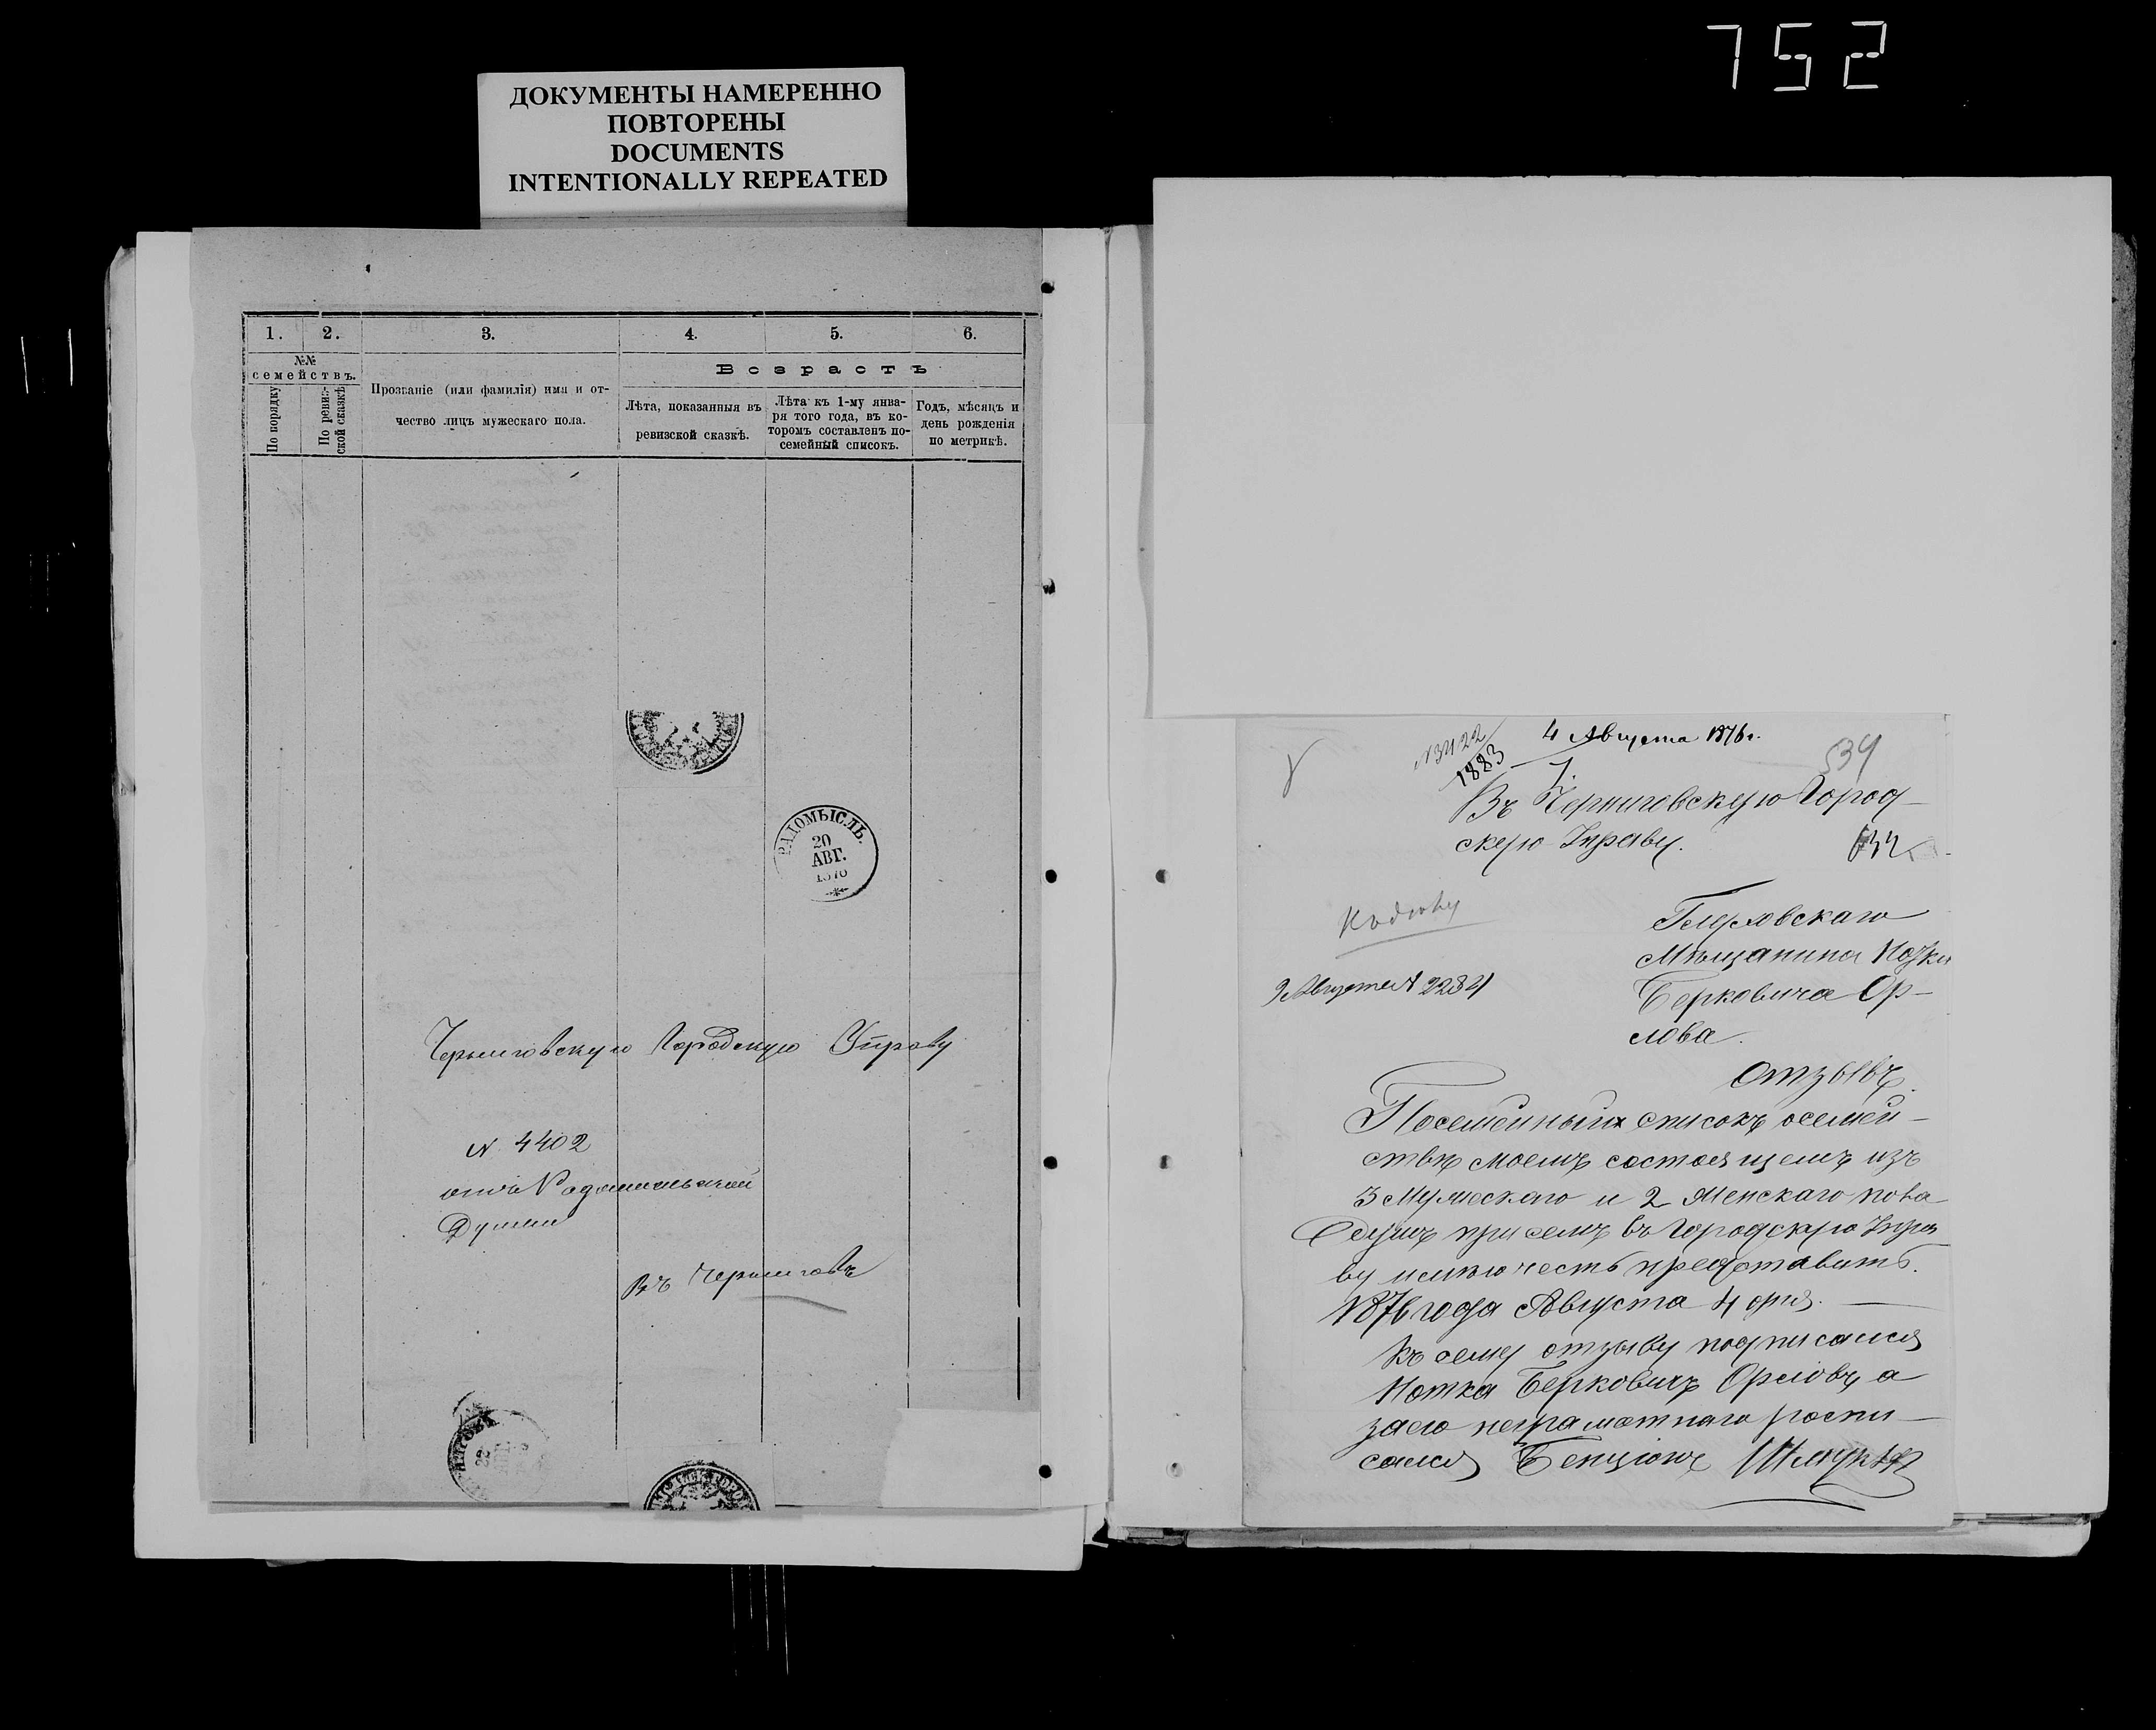 752
ДОКУМЕНТЫ НАМЕРЕННО
ПОВТОРЕНЫ
DOCUMENTS
INTENTIONALLY REPEATED
1. 2. 3. 4. 5. 6.
№№
семействъ.
По порядку
По ревиз-
ской сказкѣ
Прозваніе (или фамилія) имя и от-
чество лицъ мужескаго пола.
Возрастъ
Лѣта, показанныя въ
ревизской сказкѣ.
Лѣта къ 1-му янва-
ря того года, въ ко-
торомъ составленъ по-
семейный списокъ.
Годъ, мѣсяцъ и
день рожденія
по метрикѣ.
РАДОМЫСЛЬ.
20
АВГ.
1876
Черниговскую Городскую Управу
N 4402
отъ Радомысльской
Думы
Въ Черниговъ
4 Августа 1876 г.
N 3422
1883
534
Въ Черниговскую Город-
скую Управу.
632
9 Августа N 2284
Мѣщанина Нотки
Берковича Ор-
лова.
Отзывъ.
Посемейный списокъ о семей-
ствѣ моемъ состоящемъ изъ
3 Мужескаго и 2 Женскаго пола
душъ при семъ въ Городскую Упра
ву имѣю честь представить.
1876 года Августа 4 дня.
Къ сему отзыву подписался
Нотка Берковичъ Орловъ, а
за его неграмотнаго роспи-
сался Бенціонъ